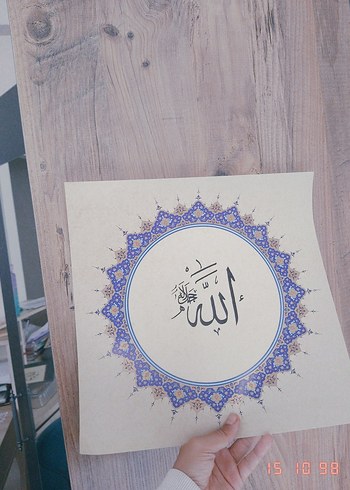 الله جل جلاله
15 10 98